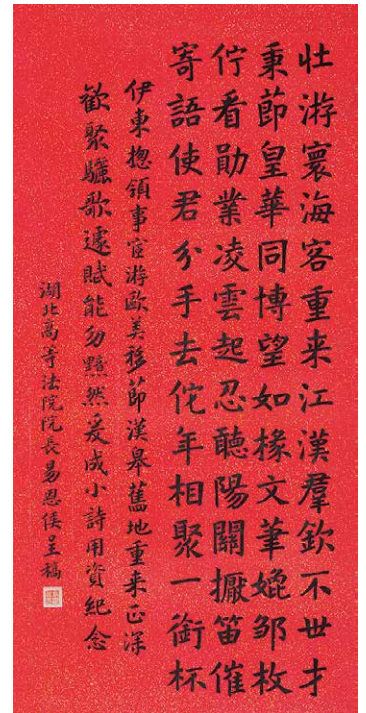 壮游寰海客重来江漢羣欽不世才
秉節皇華同博望如椽文筆媲邹枚
佇看勛業凌雲起忍聽陽關擫笛催
寄語使君分手去佗年相聚一銜杯
伊東揔領事宦游歐美移節漢皋舊地重来正深
歡聚驪歌遽賦能勿黯然爰成小詩用資紀念
湖北高等法院院長易恩侯呈稿